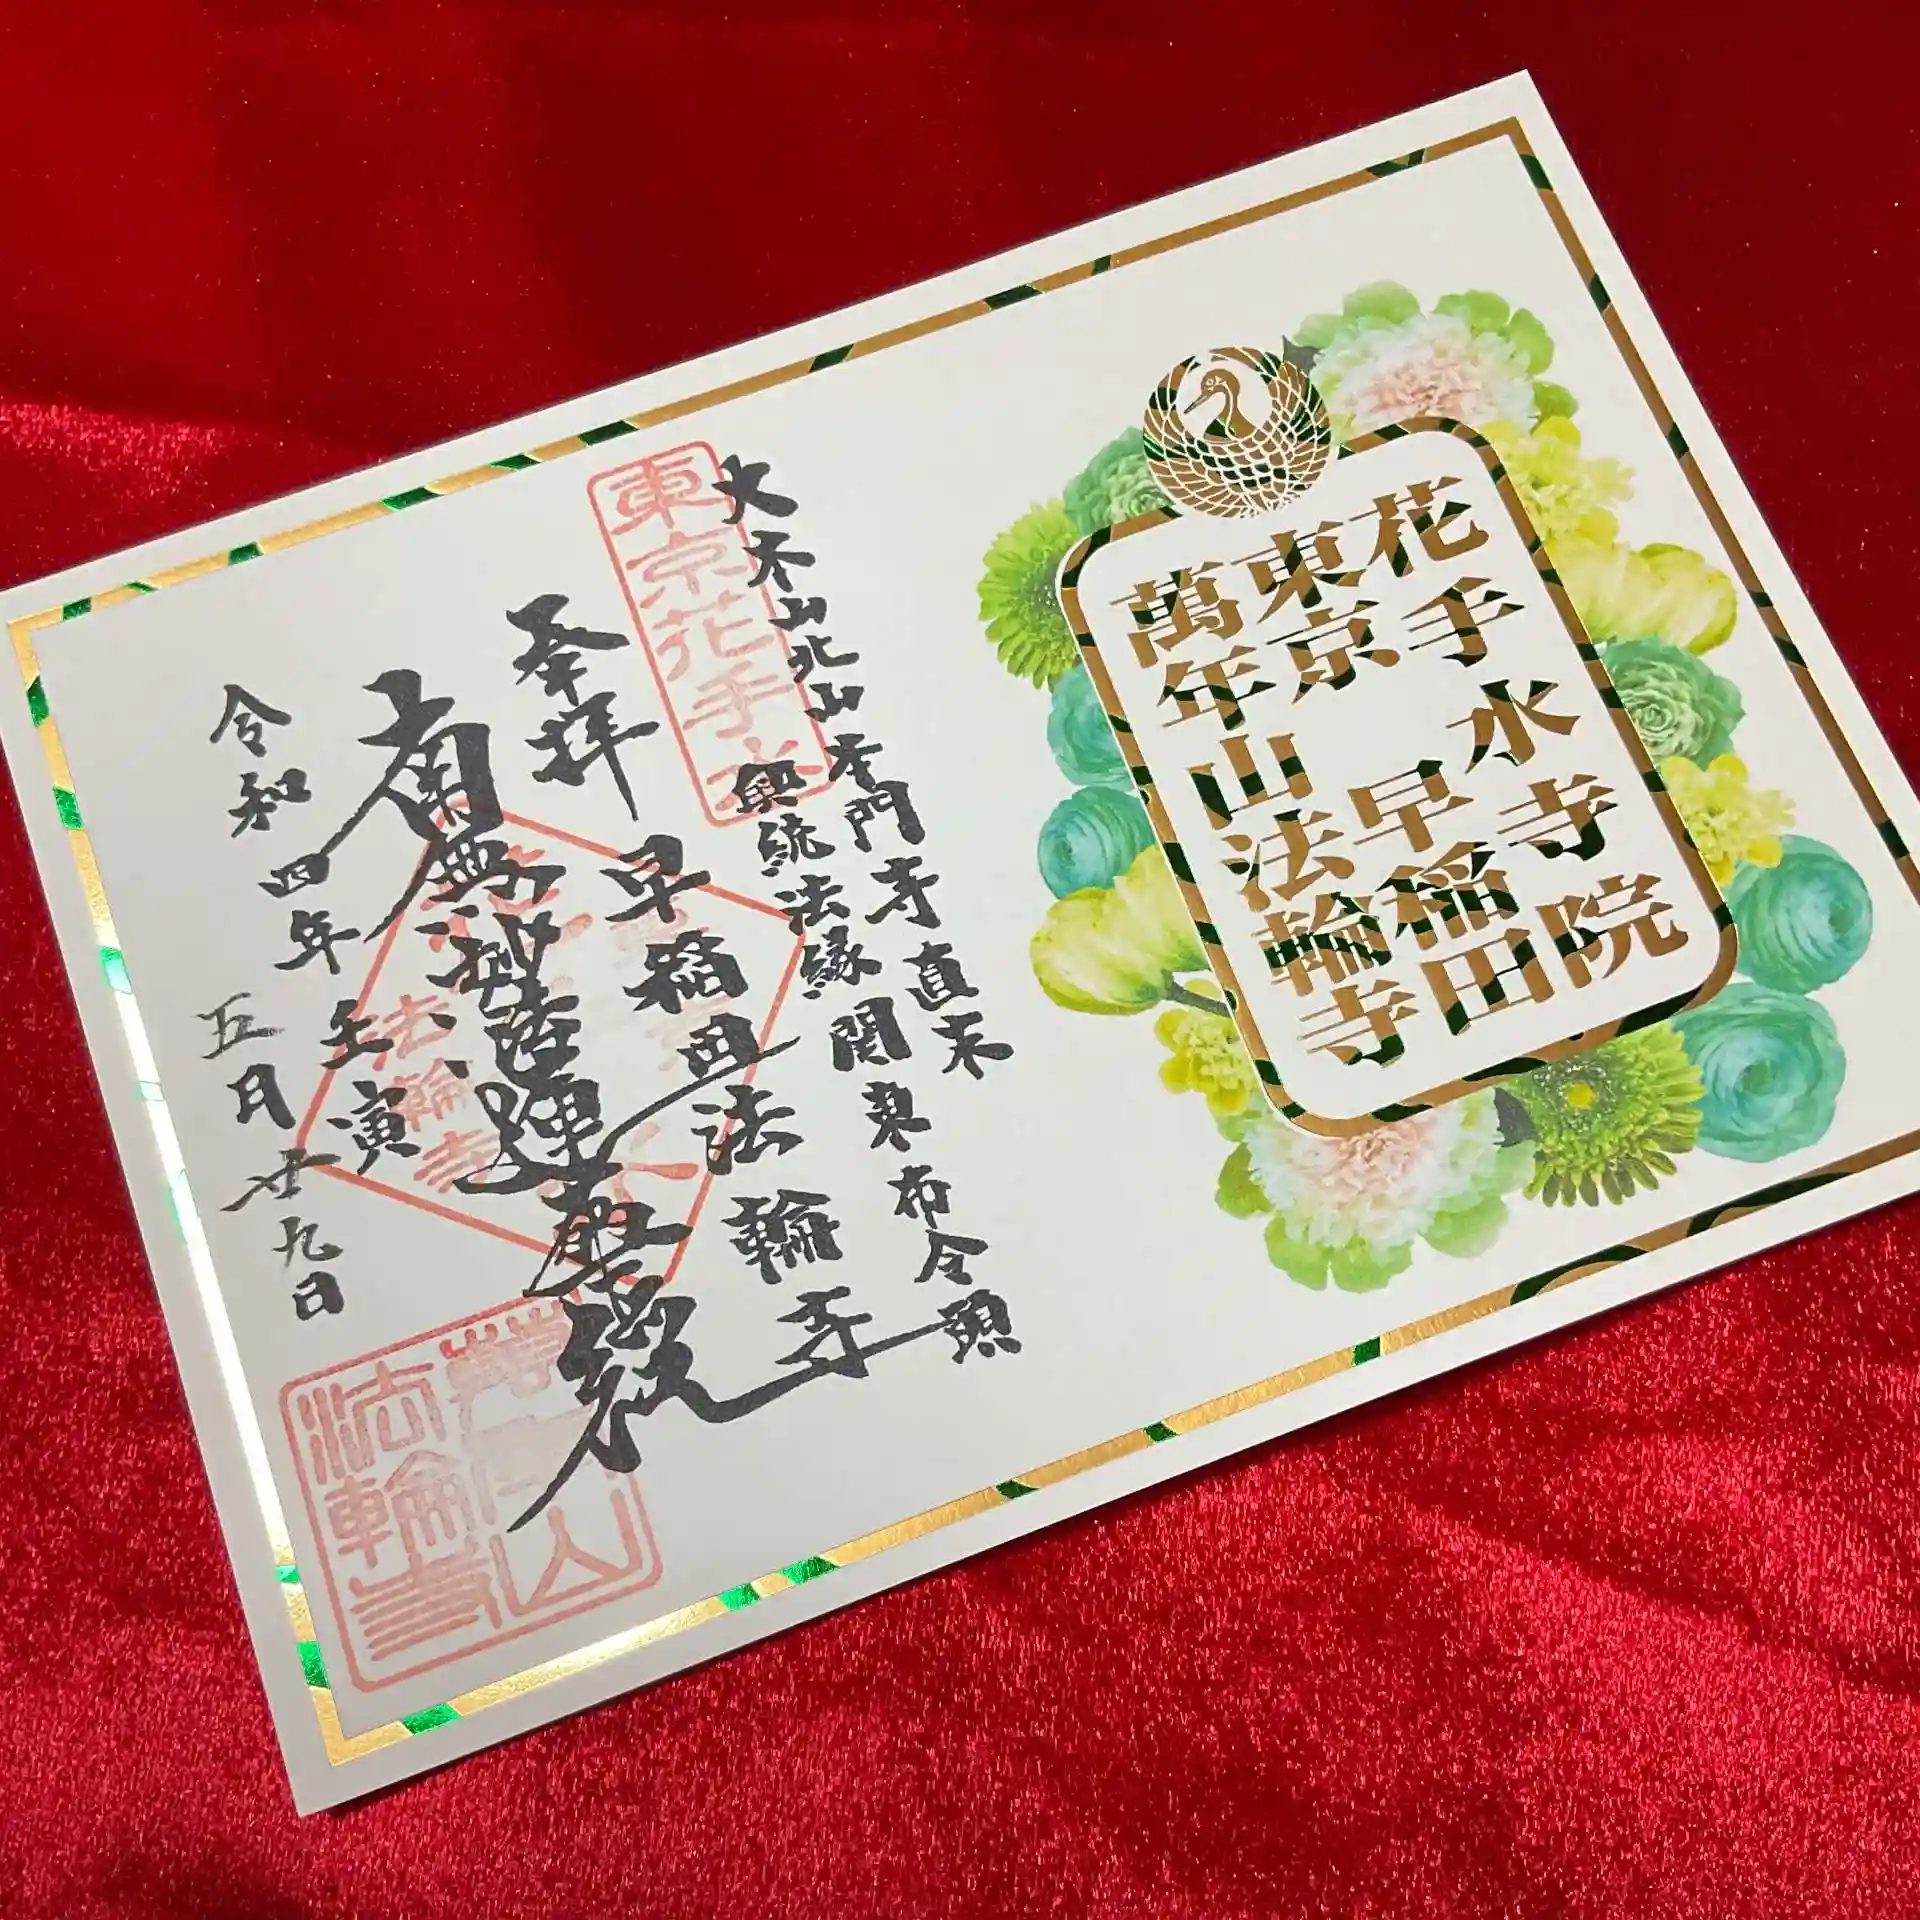 花手水寺院
東京 早稲田
萬年山法輪寺
東京花手水
大本山北山本門寺直末
興統法縁関東布令頭
奉拝 早稲田法輪寺
南無妙法蓮華経
令和四年壬寅
五月廿九日
法輪寺
法輪寺